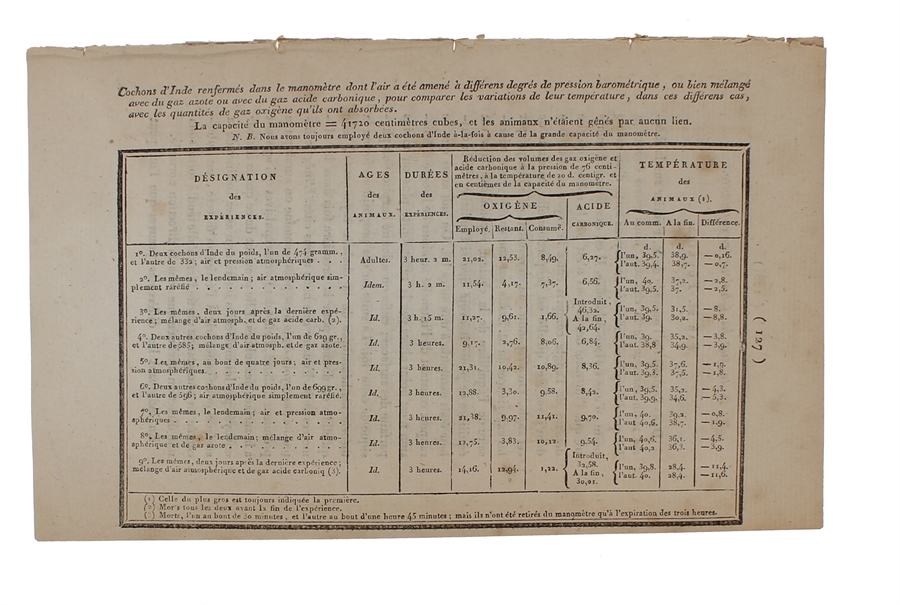 Cochons d'Inde renfermés dans le manomètre dont l'air a été amené à différens degrés de pression barométrique, ou bien mélangé
avec du gaz azote ou avec du gaz acide carbonique, pour comparer les variations de leur température, dans ces différens cas,
avec les quantités de gaz oxigène qu'ils ont absorbées.
La capacité du manomètre = 41720 centimètres cubes, et les animaux n'étaient gênés par aucun lien.
N. B. Nous avons toujours employé deux cochons d'Inde à-la-fois à cause de la grande capacité du manomètre.
DÉSIGNATION
des
EXPÉRIENCES.
AGES
des
ANIMAUX.
DURÉES
des
EXPÉRIENCES.
Réduction des volumes des gaz oxigène et
acide carbonique à la pression de 76 centi-
mètres, à la température de 20 d. centigr. et
en centièmes de la capacité du manomètre.
OXIGÈNE
Employé. Restant. Consumé.
ACIDE
CARBONIQUE.
TEMPÉRATURE
des
ANIMAUX (1).
Au comm. A la fin. Différence.
d. d. d.
1º. Deux cochons d'Inde du poids, l'un de 474 gramm.,
et l'autre de 332; air et pression atmosphériques . . .
Adultes. 3 heur. 2 m. 21,02. 12,53. 8,49. 6,27.
l'un, 39,5. 38,9. — 0,16.
l'aut. 39,4. 38,7. — 0,7.
2º. Les mêmes, le lendemain; air atmosphérique sim-
plement raréfié . . . . . . . . . . . .
Idem. 3 h. 2 m. 11,54. 4,17. 7,37. 6,56.
l'un, 40. 37,2. — 2,8.
l'aut. 39,5. 37. — 2,5.
3º. Les mêmes, deux jours après la dernière expé-
rience; mélange d'air atmosph. et de gaz acide carb. (2).
Id. 3 h. 15 m. 11,27. 9,61. 1,66.
Introduit,
46,32.
A la fin,
42,64.
l'un, 39,5. 31,5. — 8.
l'aut. 39. 30,2. — 8,8.
4º. Deux autres cochons d'Inde du poids, l'un de 629 gr.,
et l'autre de 585; mélange d'air atmosph. et de gaz azote.
Id. 3 heures. 9,17. 2,76. 8,06. 6,84.
l'un, 39. 35,2. — 3,8.
l'aut. 38,8 34,9. — 3,9.
5º. Les mêmes, au bout de quatre jours; air et pres-
sion atmosphériques. . . . . . . . . . .
Id. 3 heures. 21,31. 10,42. 10,89. 8,36.
l'un, 39,5. 37,6. — 1,9.
l'aut. 39,3. 37,5. — 1,8.
6º. Deux autres cochons d'Inde du poids, l'un de 699 gr.,
et l'autre de 596; air atmosphérique simplement raréfié.
Id. 3 heures. 12,88. 3,30. 9,58. 8,42.
l'un, 39,5. 35,2. — 4,3.
l'aut. 39,9. 34,6. — 5,3.
7º. Les mêmes, le lendemain; air et pression atmo-
sphériques . . . . . . . . . . . . . .
Id. 3 heures. 21,38. 9,97. 11,41. 9,70.
l'un, 40. 39,2. — 0,8.
l'aut 40,6. 38,7. — 1,9.
8º. Les mêmes, le lendemain; mélange d'air atmo-
sphérique et de gaz azote . . . . . . . . . .
Id. 3 heures. 13,75. 3,83. 10,12. 9,54.
l'un, 40,6. 36,1. — 4,5.
l'aut 40,2 36,3. — 3,9.
9º. Les mêmes, deux jours après la dernière expérience;
mélange d'air atmosphérique et de gaz acide carboniq (3).
Id. 3 heures. 14,16. 12,94. 1,22.
Introduit,
32,58.
A la fin,
30,01.
l'un, 39,8. 28,4. — 11,4.
l'aut. 40. 28,4. — 11,6.
(1) Celle du plus gros est toujours indiquée la première.
(2) Morts tous les deux avant la fin de l'expérience.
(3) Morts, l'un au bout de 30 minutes, et l'autre au bout d'une heure 45 minutes; mais ils n'ont été retirés du manomètre qu'à l'expiration des trois heures.
( 127 )